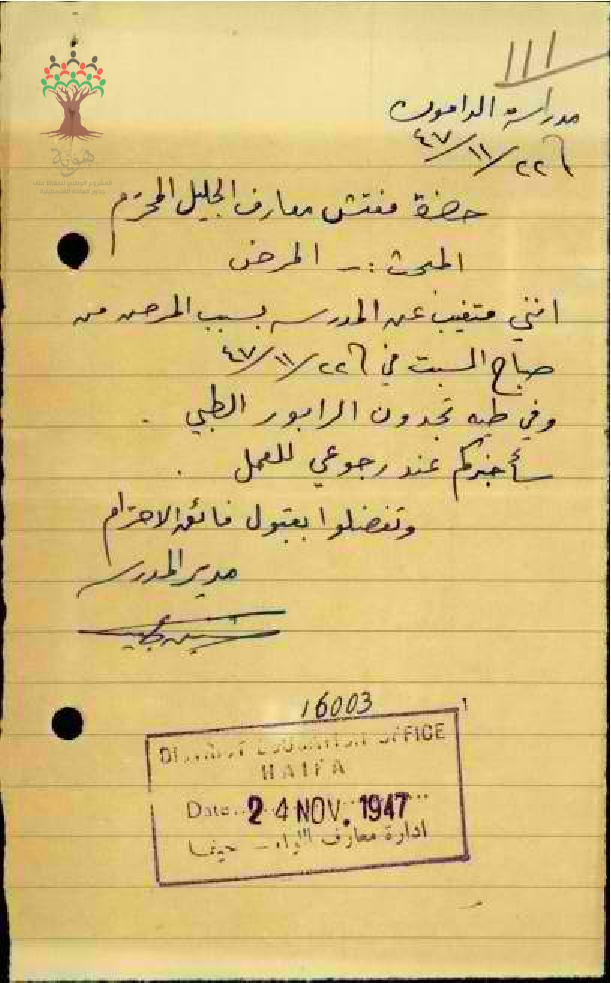 111
مدرسة الدامون
٢٢/١١/٤٧
حضرة مفتش معارف الجليل المحترم
المبحث :- المرض
انني متغيب عن المدرسه بسبب المرض من
صباح السبت في ٢٢/١١/٤٧
وفي طيه تجدون الرابور الطبي .
سأخبركم عند رجوعي للعمل .
وتفضلوا بقبول فائق الاحترام
مدير المدرسه
16003
DISTRICT EDUCATION OFFICE
HAIFA
Date 24 NOV. 1947
ادارة معارف اللواء - حيفا
هوية